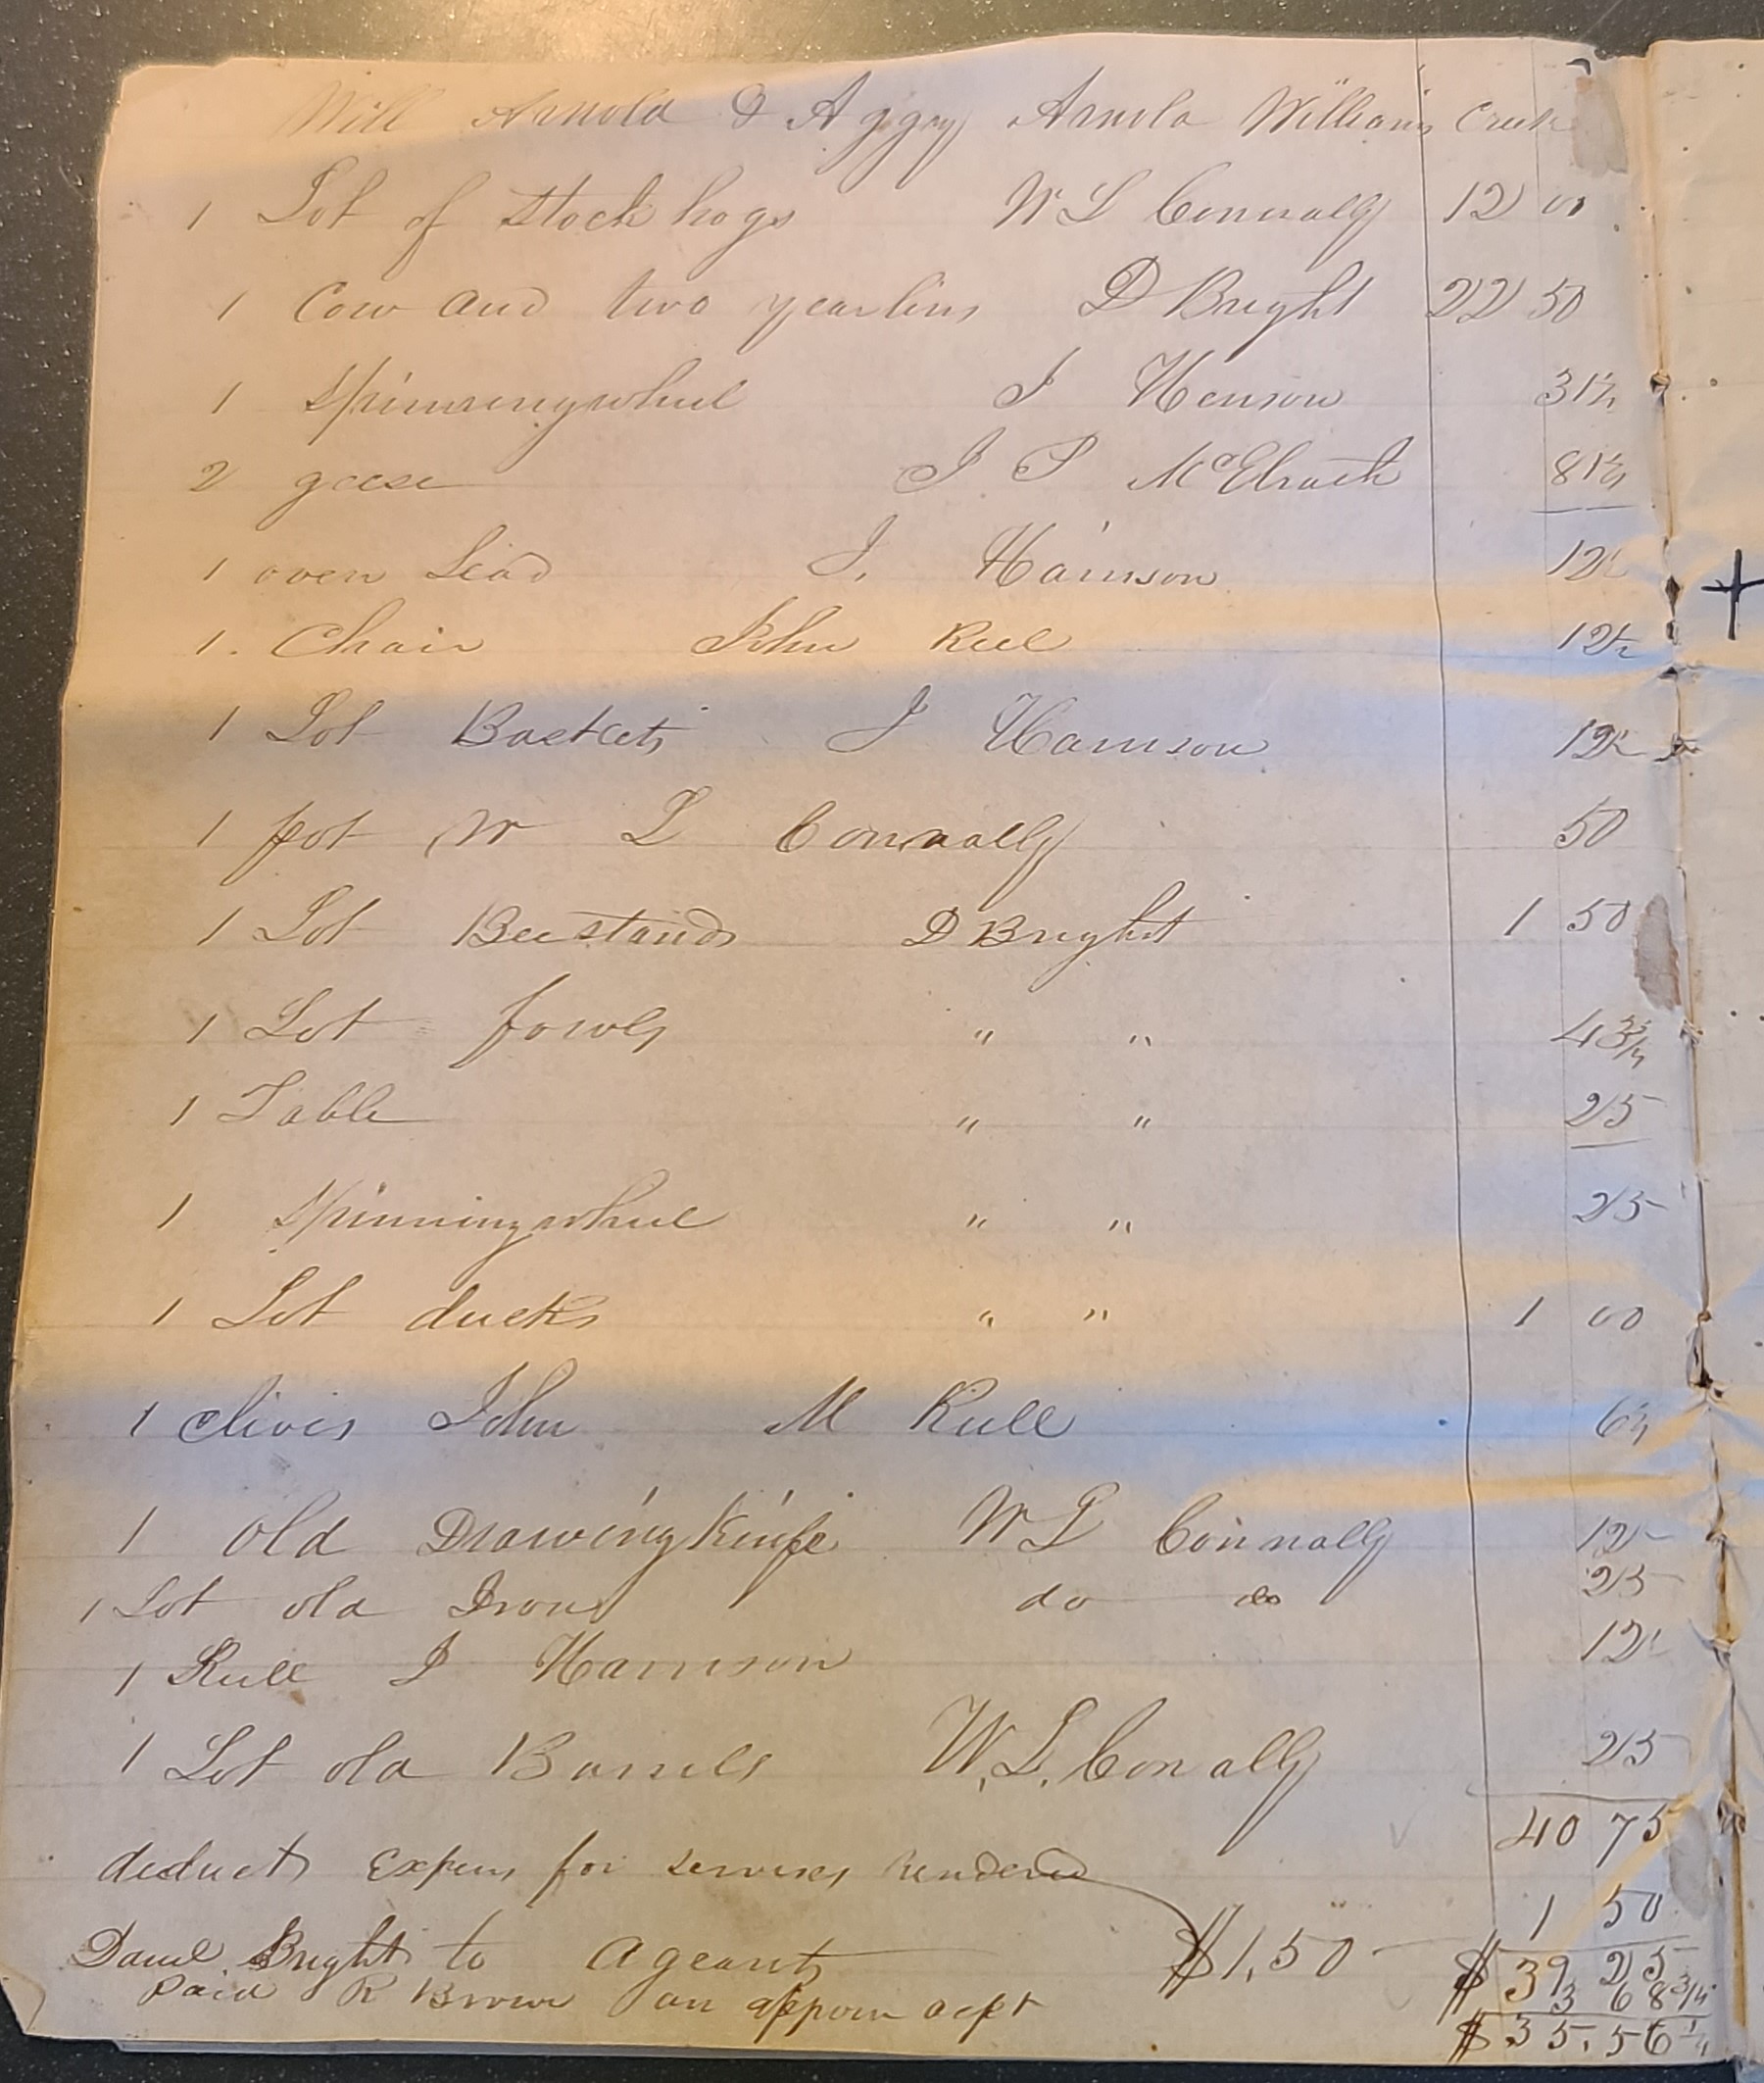 Will Arnold & Aggy Arnold Williams Creek
1 Lot of Stock hogs W L Connally 12 00
1 Cow and two yearlins D Bright 22 50
1 Spinningwheel J Henson 31½
2 geese J P McElrath 81½
1 oven Lead J. Harrison 12½
1. Chair John Rull 12½
1 Lot Baskets J Harrison 12½
1 pot W L Connally 50
1 Lot Beestands D Bright 1 50
1 Lot fowls " " 43¾
1 Table " " 25
1 Spinningwheel " " 25
1 Lot ducks " " 1 00
1 clivis John M Rull 6¼
1 old Drawingknife W L Connally 12½
1 Lot old Irons do do 25
1 Rull J Harrison 12½
1 Lot old Barrels W. L. Conally 25
40 75
deduct Expens for servises rendered 1 50
Daniel Bright to Ageant $1,50 $39 25
Paid R Brown an appom acpt 3 68¾
$35.56¼